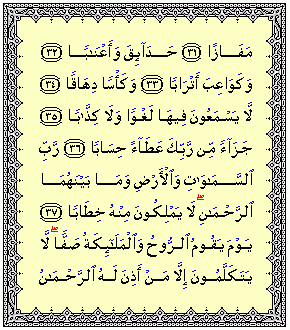 مَفَازًا ٣١ حَدَآئِقَ وَأَعْنَٰبًا ٣٢
وَكَوَاعِبَ أَتْرَابًا ٣٣ وَكَأْسًا دِهَاقًا ٣٤
لَّا يَسْمَعُونَ فِيهَا لَغْوًا وَلَا كِذَّٰبًا ٣٥
جَزَآءً مِّن رَّبِّكَ عَطَآءً حِسَابًا ٣٦ رَّبِّ
ٱلسَّمَٰوَٰتِ وَٱلْأَرْضِ وَمَا بَيْنَهُمَا
ٱلرَّحْمَٰنِ ۖ لَا يَمْلِكُونَ مِنْهُ خِطَابًا ٣٧
يَوْمَ يَقُومُ ٱلرُّوحُ وَٱلْمَلَٰٓئِكَةُ صَفًّا ۖ لَّا
يَتَكَلَّمُونَ إِلَّا مَنْ أَذِنَ لَهُ ٱلرَّحْمَٰنُ